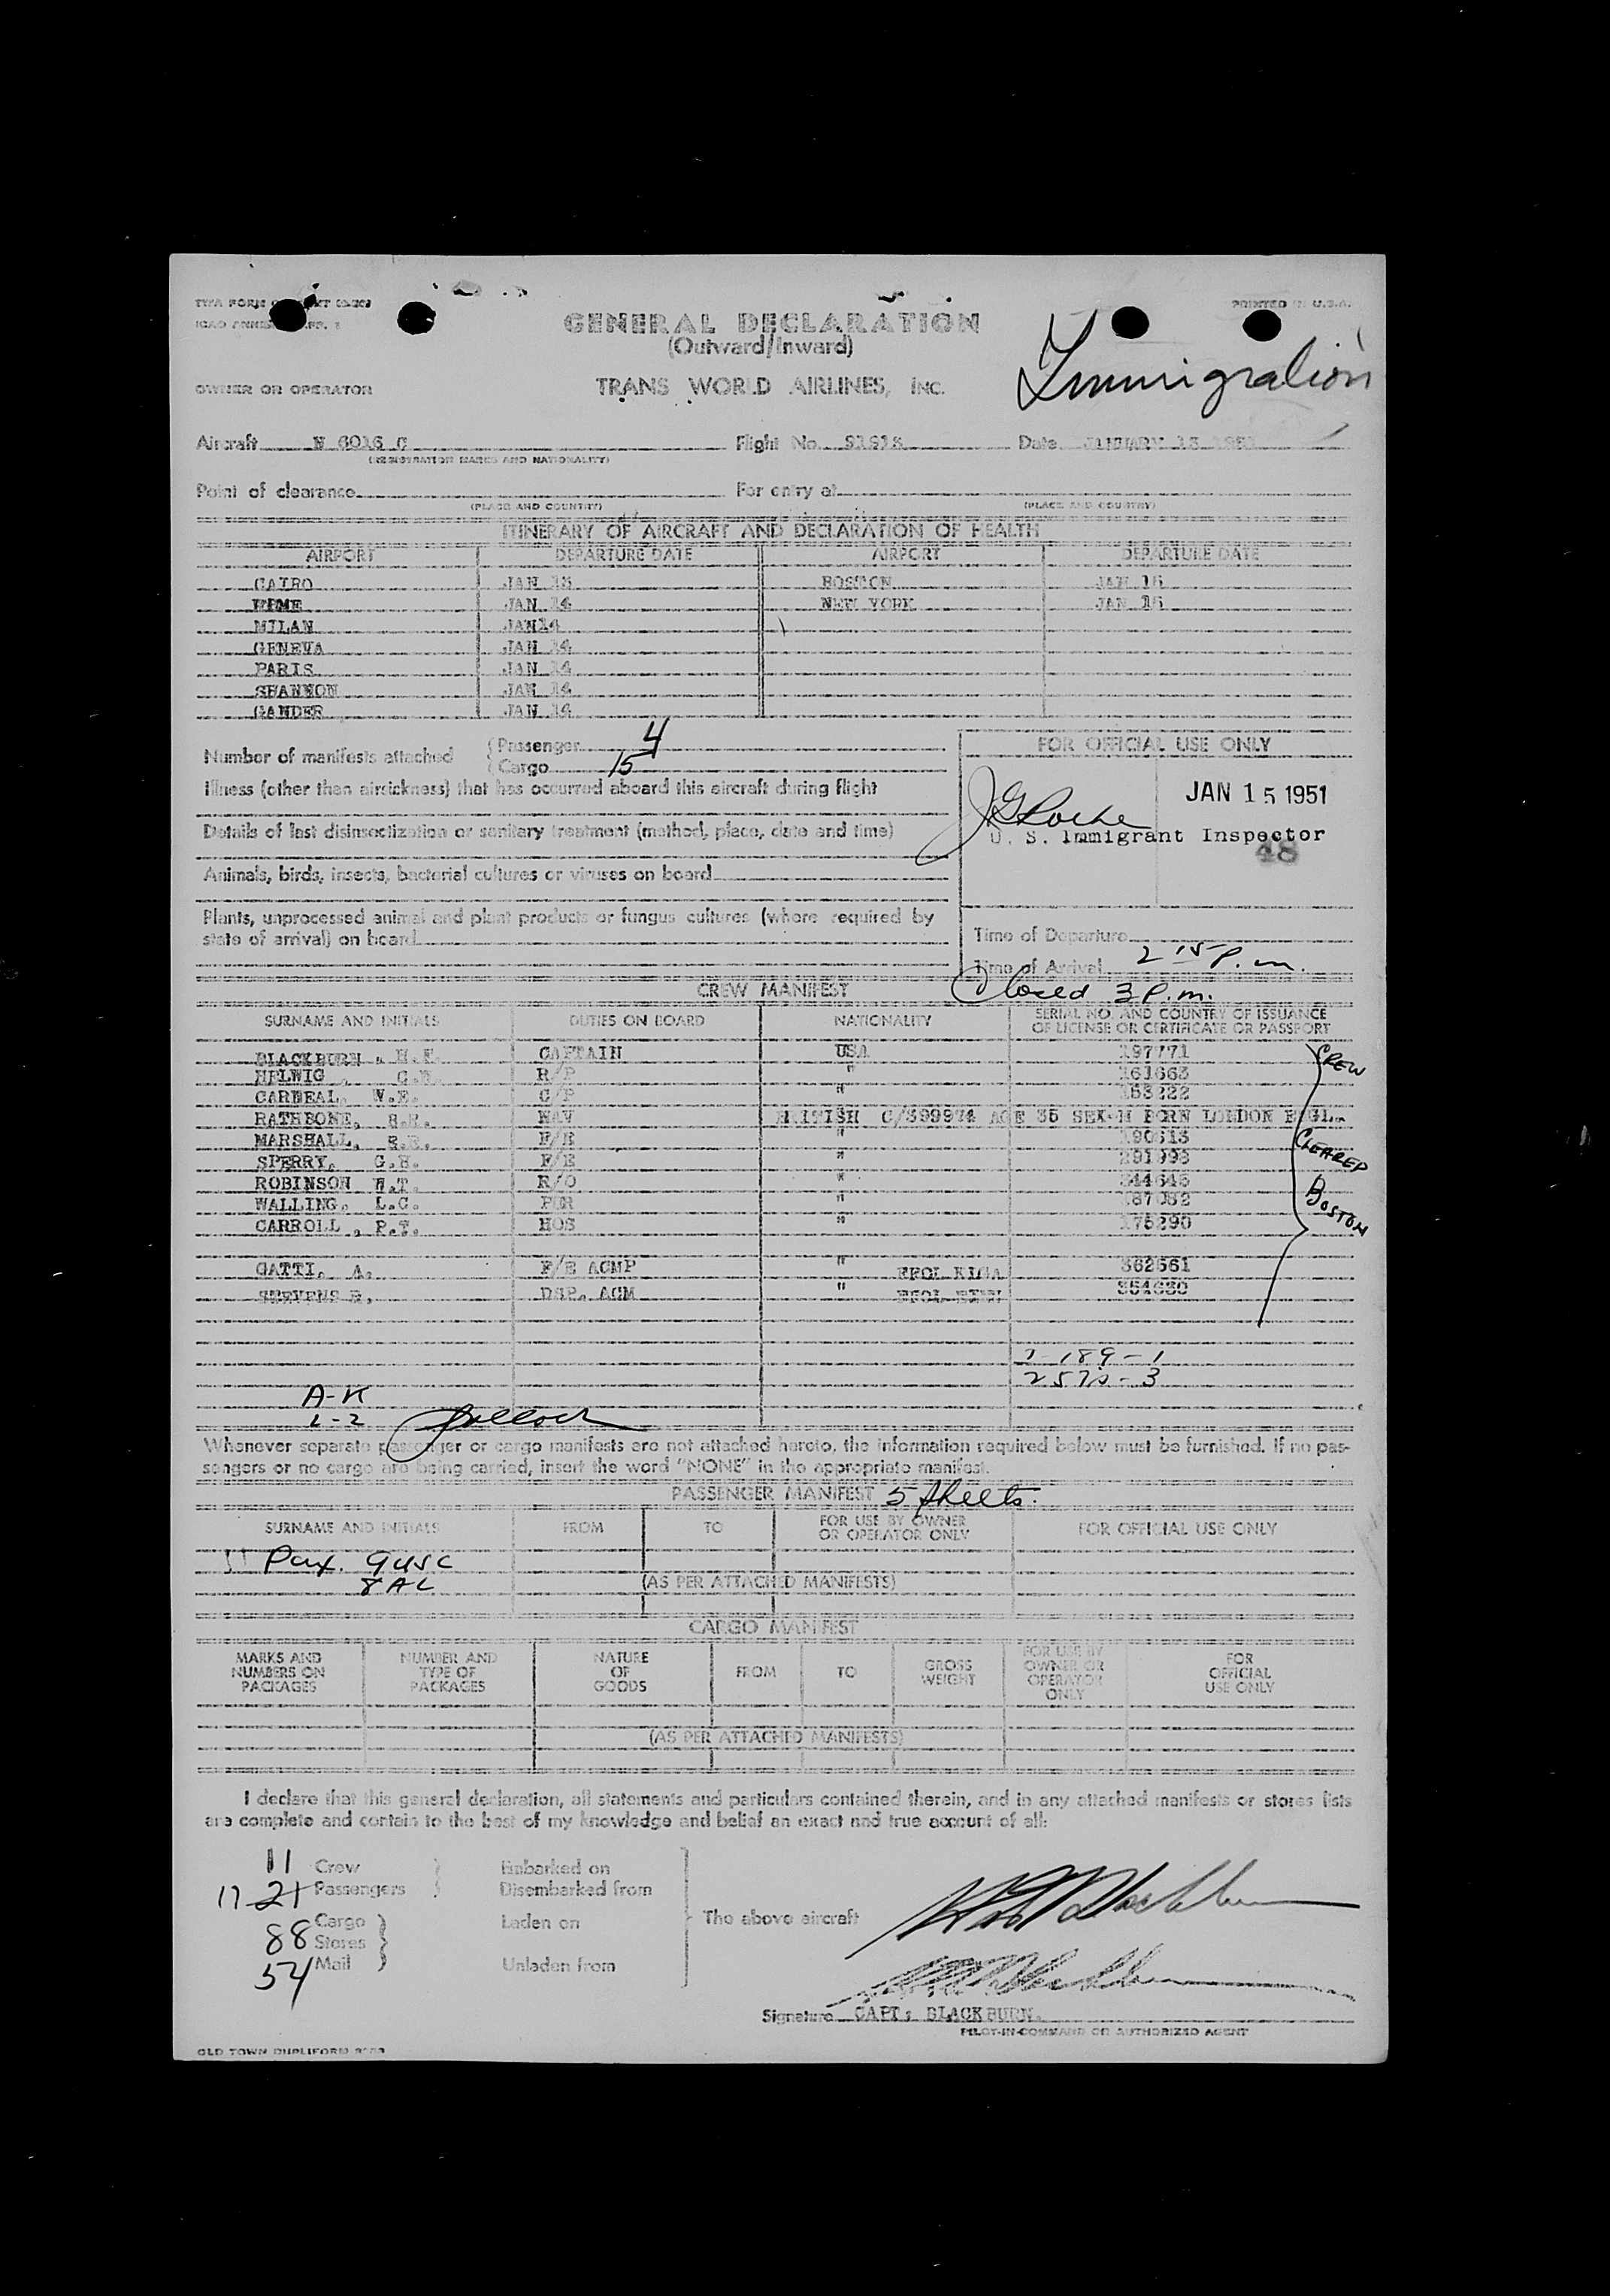 GENERAL DECLARATION
(Outward/Inward)
PRINTED IN U.S.A.
Immigration
OWNER OR OPERATOR TRANS WORLD AIRLINES, INC.
Aircraft N 6016 C Flight No. Date JANUARY 13 1951
(REGISTRATION MARKS AND NATIONALITY)
Point of clearance For entry at
(PLACE AND COUNTRY) (PLACE AND COUNTRY)
ITINERARY OF AIRCRAFT AND DECLARATION OF HEALTH
AIRPORT DEPARTURE DATE AIRPORT DEPARTURE DATE
CAIRO JAN BOSTON JAN 15
JAN 14 NEW YORK JAN 15
MILAN JAN14
GENEVA JAN 14
PARIS JAN 14
SHANNON JAN 14
GANDER JAN 14
Number of manifests attached
Passenger 4
Cargo 15
FOR OFFICIAL USE ONLY
Illness (other than airsickness) that has occurred aboard this aircraft during flight
JAN 15 1951
Details of last disinsectization or sanitary treatment (method, place, date and time)
U. S. Immigrant Inspector
48
Animals, birds, insects, bacterial cultures or viruses on board
Plants, unprocessed animal and plant products or fungus cultures (where required by
state of arrival) on board
Time of Departure
Time of Arrival 2 15 P.m.
Closed 3 P.m.
CREW MANIFEST
SURNAME AND INITIALS DUTIES ON BOARD NATIONALITY SERIAL NO. AND COUNTRY OF ISSUANCE
OF LICENSE OR CERTIFICATE OR PASSPORT
BLACKBURN, H.F. CAPTAIN USA 197771
HELWIG, R/P " 161663
CARDEAL, W.E. " 153222
RATHBONE, NAV BRITISH C/399974 AGE 35 SEX-M BORN LONDON ENGL.
MARSHALL, F/E "
SPERRY, G.H. F/E "
ROBINSON W.T. R/O "
WALLING, L.C. PUR "
CARROLL, P.T. HOS " 175290
CREW
CLEARED
BOSTON
GATTI, A. F/E ACMP " 362561
STEVENS DSP. ACM "
A-K
Whenever separate passenger or cargo manifests are not attached hereto, the information required below must be furnished. If no pas-
sengers or no cargo are being carried, insert the word "NONE" in the appropriate manifest.
PASSENGER MANIFEST 5 sheets.
SURNAME AND INITIALS FROM TO FOR USE BY OWNER
OR OPERATOR ONLY FOR OFFICIAL USE ONLY
Pax. 9 USC
8 AL
(AS PER ATTACHED MANIFESTS)
CARGO MANIFEST
MARKS AND
NUMBERS ON
PACKAGES
NUMBER AND
TYPE OF
PACKAGES
NATURE
OF
GOODS
FROM
TO
GROSS
WEIGHT
FOR USE BY
OWNER OR
OPERATOR
ONLY
FOR
OFFICIAL
USE ONLY
(AS PER ATTACHED MANIFESTS)
I declare that this general declaration, all statements and particulars contained therein, and in any attached manifests or stores lists
are complete and contain to the best of my knowledge and belief an exact and true account of all:
11 Crew Embarked on
17 21 Passengers Disembarked from
88 Cargo Laden on The above aircraft
Stores
54 Mail Unladen from
Signature CAPT. BLACKBURN.
PILOT-IN-COMMAND OR AUTHORIZED AGENT